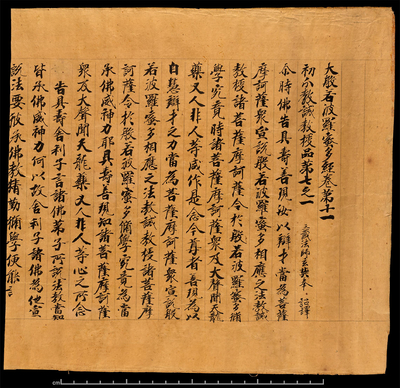 大般若波羅蜜多經卷第十一
初分教誡教授品第七之一 三藏法師玄奘奉 詔譯
尒時佛告具壽善現汝以辯才當為菩薩
摩訶薩眾宣說般若波羅蜜多相應之法教誡
教授諸菩薩摩訶薩令於般若波羅蜜多脩
學究竟時諸菩薩摩訶薩眾及大聲聞天龍
藥叉人非人等咸作是念今尊者善現為以
自慧辯才之力當為菩薩摩訶薩眾宣說般
若波羅蜜多相應之法教誡教授諸菩薩摩
訶薩令於般若波羅蜜多脩學究竟為當
承佛威神力耶具壽善現知諸菩薩摩訶薩
眾及大聲聞天龍藥叉人非人等心之所念
告具壽舍利子言諸佛弟子所說法教當知
皆承佛威神力何以故舍利子諸佛為他宣
說法要彼承佛教精勤脩學便能
cm